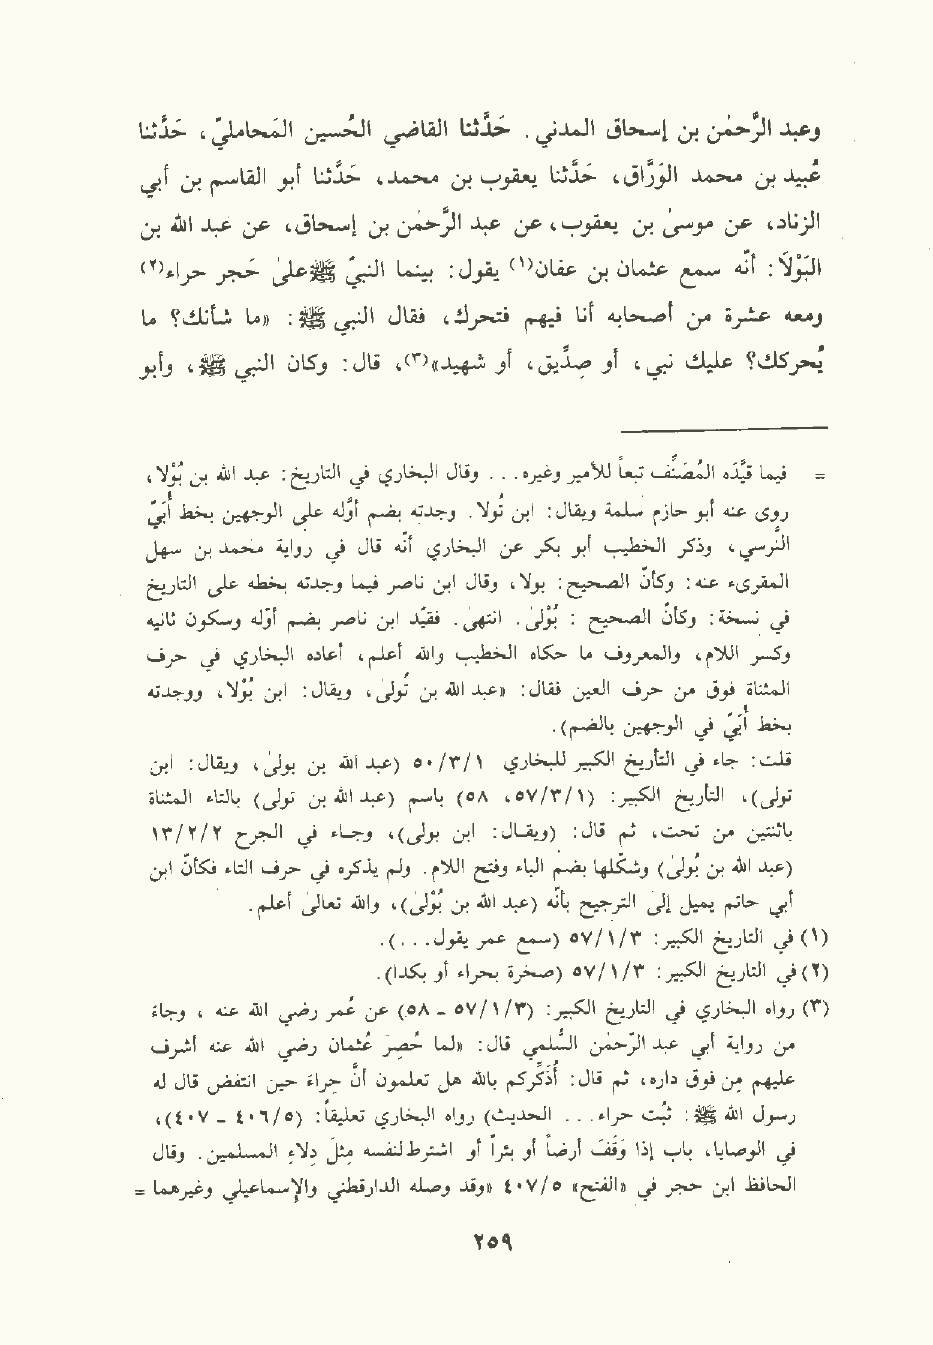 وعبد الرَّحمٰن بن إسحاق المدني. حَدَّثنا القاضي الحُسين المَحامليّ، حَدَّثنا
عُبيد بن محمد الوَرَّاق، حَدَّثنا يعقوب بن محمد، حَدَّثنا أبو القاسم بن أبي
الزناد، عن موسىٰ بن يعقوب، عن عبد الرَّحمن بن إسحاق، عن عبد الله بن
البَوْلَا: أنّه سمع عثمان بن عفان(١) يقول: بينما النبيّ ﷺ علىٰ حَجر حراء(٢)
ومعه عشرة من أصحابه أنا فيهم فتحرك، فقال النبي ﷺ: «ما شأنك؟ ما
يُحركك؟ عليك نبي، أو صِدِّيق، أو شهيد»(٣)، قال: وكان النبي ﷺ، وأبو
= فيما قيَّده المُصَنِّف تبعاً للأمير وغيره... وقال البخاري في التاريخ: عبد الله بن بُوْلا،
روى عنه أبو حازم سلمة ويقال: ابن تُولا. وجدته بضم أوَّله على الوجهين بخط أُبَيّ
النَّرسي، وذكر الخطيب أبو بكر عن البخاري أنَّه قال في رواية محمد بن سهل
المقرىء عنه: وكأنَّ الصحيح: بولا، وقال ابن ناصر فيما وجدته بخطه على التاريخ
في نسخة: وكأنَّ الصحيح: بُوْلىٰ. انتهىٰ. فقيَّد ابن ناصر بضم أوَّله وسكون ثانيه
وكسر اللام، والمعروف ما حكاه الخطيب والله أعلم، أعاده البخاري في حرف
المثناة فوق من حرف العين فقال: «عبد الله بن تُولىٰ، ويقال: ابن بُوْلا، ووجدته
بخط أُبَيّ في الوجهين بالضم).
قلت: جاء في التأريخ الكبير للبخاري ٥٠/٣/١ (عبد الله بن بولىٰ، ويقال: ابن
تولى)، التأريخ الكبير: (٥٧/٣/١، ٥٨) باسم (عبد الله بن تولى) بالتاء المثناة
باثنتين من تحت، ثم قال: (ويقال: ابن بولى)، وجاء في الجرح ١٣/٢/٢
(عبد الله بن بُولىٰ) وشكّلها بضم الباء وفتح اللام. ولم يذكره في حرف التاء فكأنّ ابن
أبي حاتم يميل إلى الترجيح بأنّه (عبد الله بن بُوْلىٰ)، والله تعالىٰ أعلم.
(١) في التاريخ الكبير: ٥٧/١/٣ (سمع عمر يقول...).
(٢) في التاريخ الكبير: ٥٧/١/٣ (صخرة بحراء أو بكدا).
(٣) رواه البخاري في التاريخ الكبير: (٥٧/١/٣ - ٥٨) عن عُمر رضي الله عنه، وجاءَ
من رواية أبي عبد الرَّحمٰن السُّلَمي قال: «لما حُصِرَ عُثمان رضي الله عنه أشرف
عليهم من فوق داره، ثم قال: أُذَكِّركم بالله هل تعلمون أنَّ حِراءَ حين انتفض قال له
رسول الله ﷺ: ثبُت حراء... الحديث) رواه البخاري تعليقاً: (٤٠٦/٥ - ٤٠٧)،
في الوصايا، باب إذا وَقَفَ أرضاً أو بئراً أو اشترط لنفسه مِثلَ دِلاءِ المسلمين. وقال
الحافظ ابن حجر في «الفتح» ٤٠٧/٥ «وقد وصله الدارقطني والإسماعيلي وغيرهما =
٢٥٩